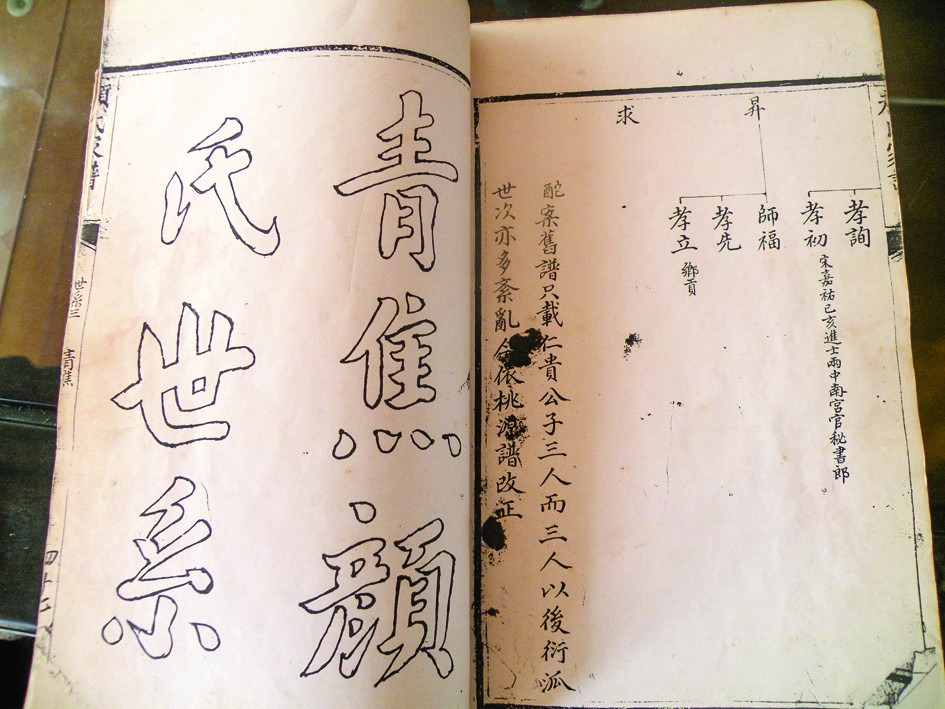 孝詢
孝初 宋嘉祐己亥進士兩中南宮官秘書郎
昇
師福
孝先
孝立 鄉貢
求
酡案舊譜只載仁貴公子三人而三人以後衍泒
世次亦多紊亂今依桃源譜改正
青焦顏
氏世系
顏氏家譜
世系三
青焦
四十二